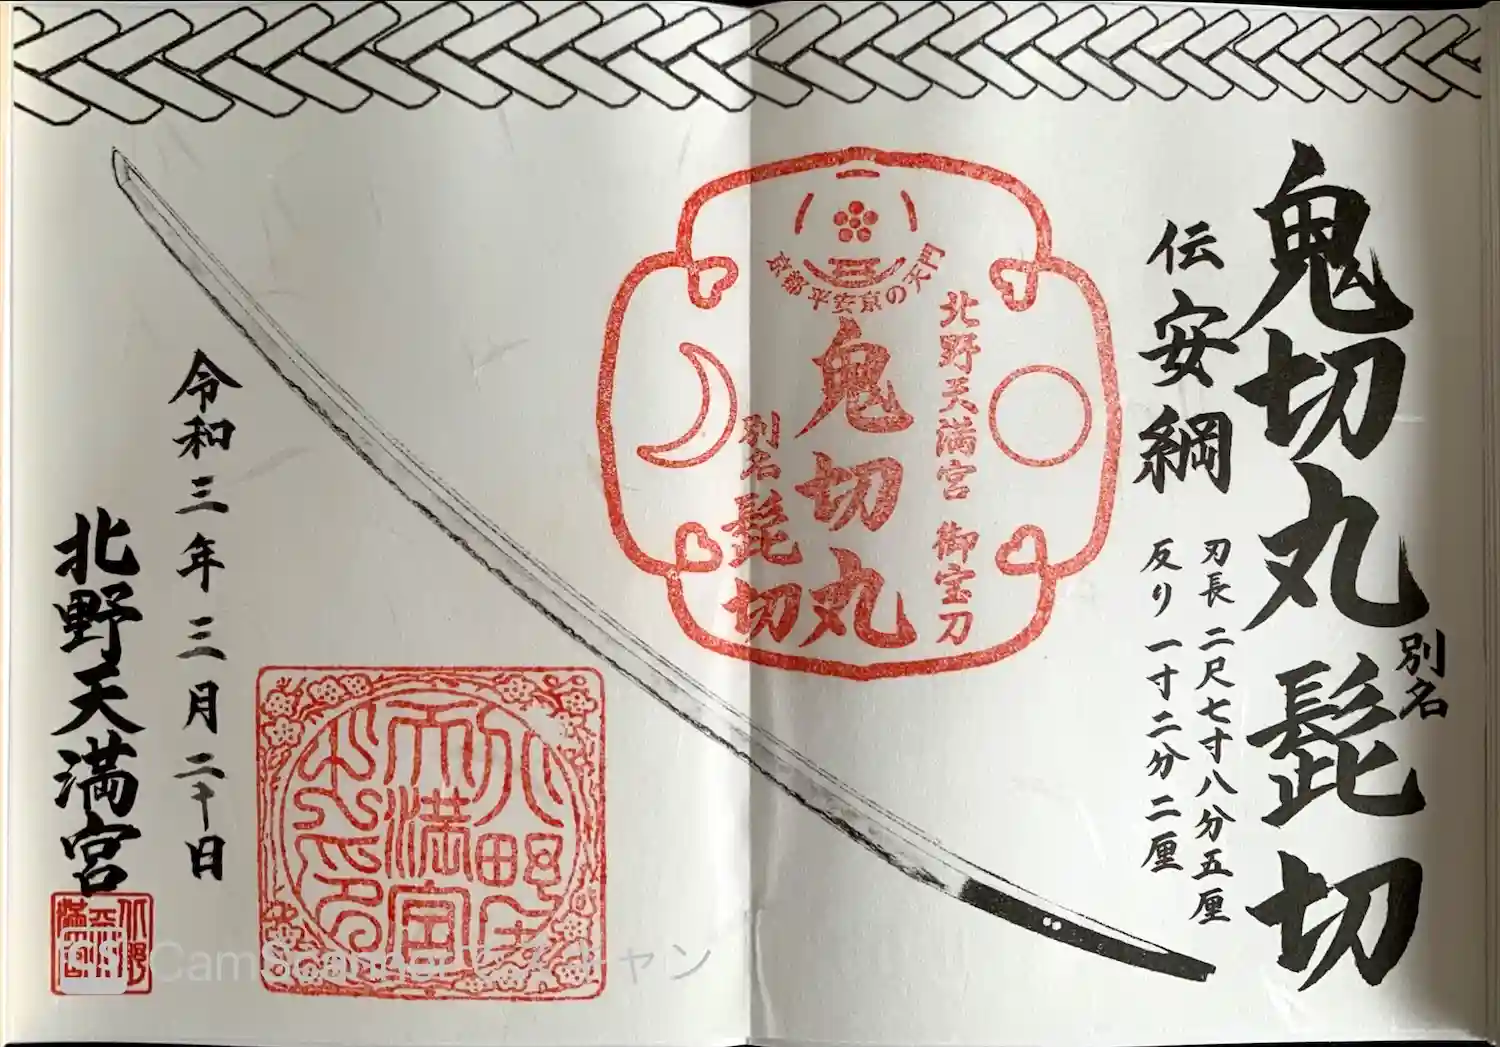 鬼切丸 別名 髭切
伝安綱
刃長 二尺七寸八分五厘
反り 一寸二分二厘
京都平安京の天門
北野天満宮 御宝刀
鬼切丸
別名 髭切
令和三年三月二十日
北野天満宮
CamScanner でスキャン